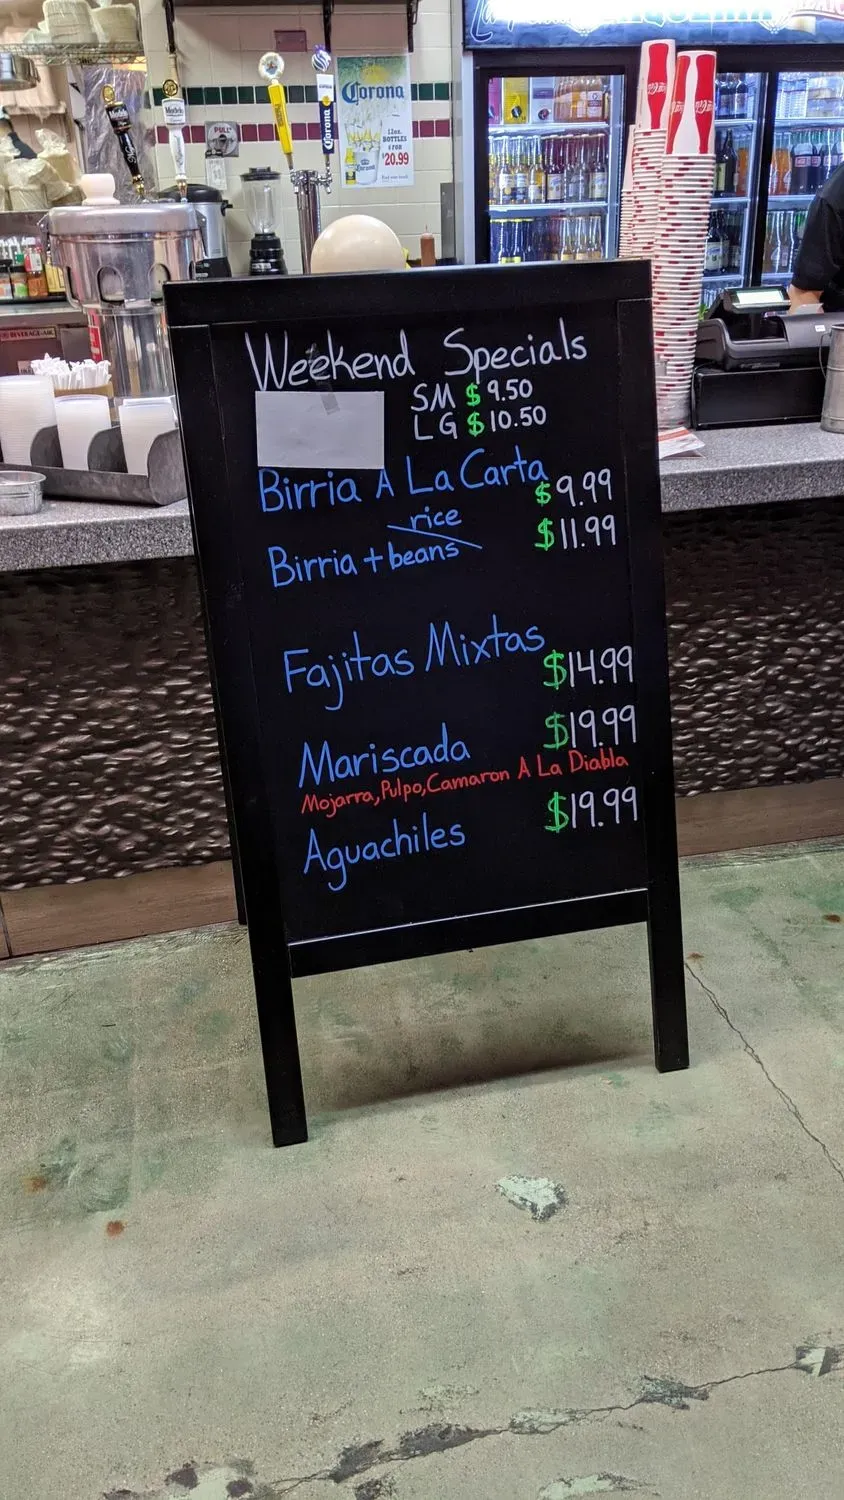 Corona
12oz.
BOTTLES
6 FOR
$20.99
Modelo
Corona
PULL
Weekend Specials
SM $ 9.50
LG $ 10.50
Birria A La Carta $9.99
rice
Birria + beans $11.99
Fajitas Mixtas $14.99
Mariscada $19.99
Mojarra, Pulpo, Camaron A La Diabla
Aguachiles $19.99